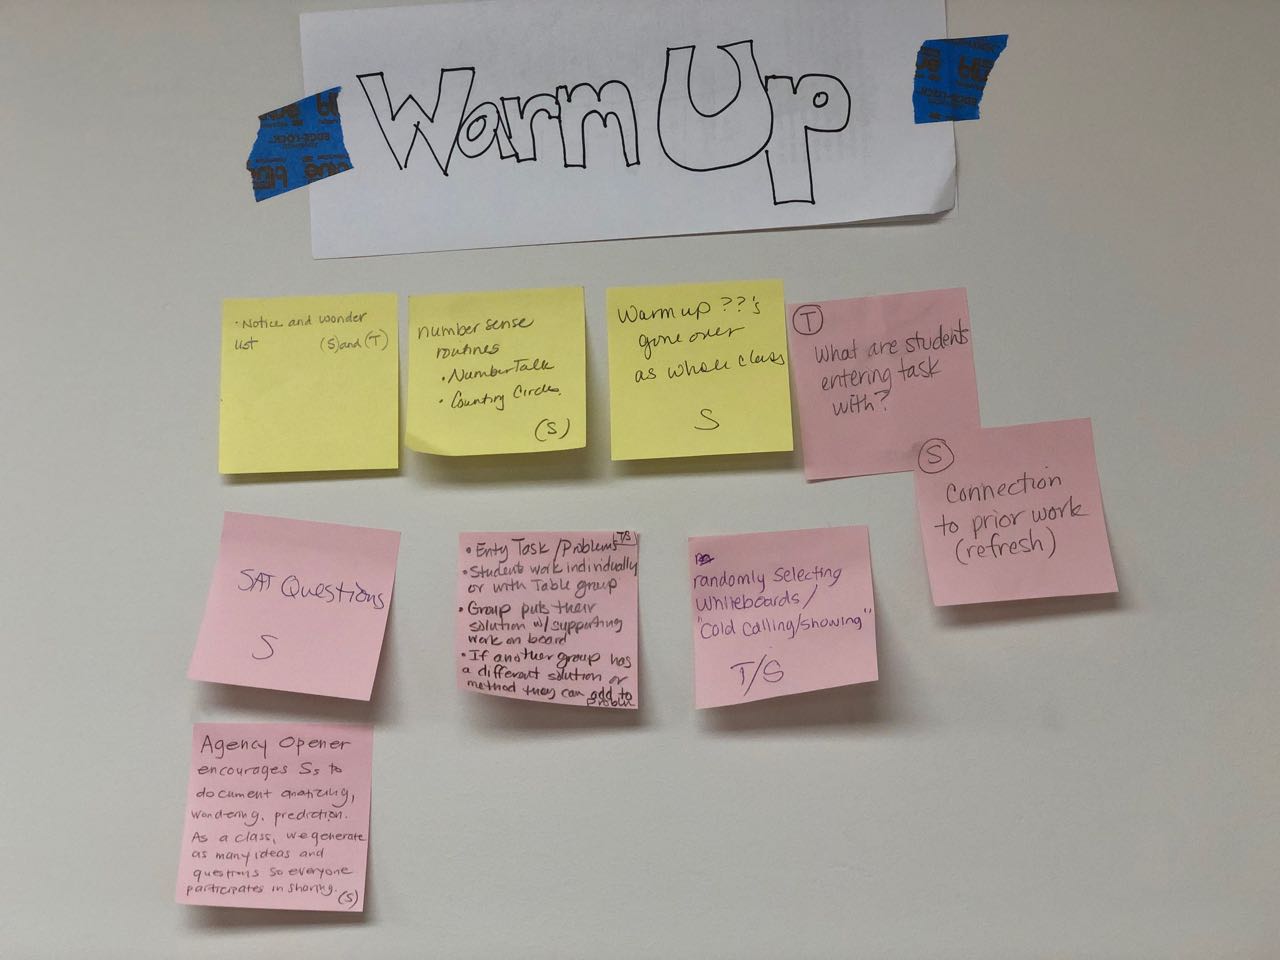 Warm Up
• Notice and wonder
list (S) and (T)
number sense
routines
• Number Talk
• Counting Circles.
(S)
Warm up ??'s
gone over
as whole class
S
T
What are students
entering task
with?
S
Connection
to prior work
(refresh)
SAT Questions
S
T/S
• Enty Task / Problems
• Student work individually
or with Table group
• Group puts their
solution w/ supporting
work on board
• If another group has
a different solution or
method they can add to
problem
randomly selecting
whiteboards/
"cold calling/showing"
T/S
Agency Opener
encourages Ss to
document noticing,
wondering, prediction.
As a class, we generate
as many ideas and
questions so everyone
participates in sharing.
(S)
EDGE-LOCK